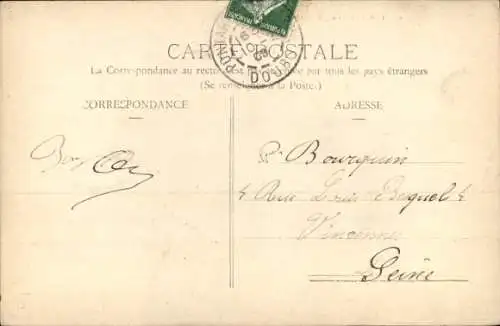 CARTE POSTALE
La Correspondance au recto n'est pas acceptée par tous les pays étrangers
(Se renseigner à la Poste.)
CORRESPONDANCE
ADRESSE
Bourquin
4 Rue Louis Besquel 4
Vincennes
Seine
DOUBS